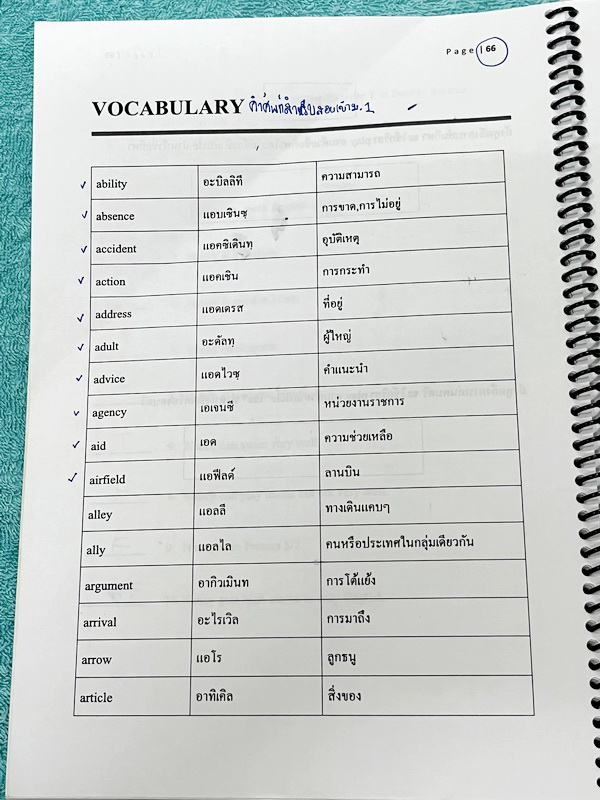 Page | 66
VOCABULARY คำศัพท์สำหรับสอบเข้าม.1
ability อะบิลลิที ความสามารถ
absence แอบเซินซฺ การขาด,การไม่อยู่
accident แอคซิเดินทฺ อุบัติเหตุ
action แอคเชิน การกระทำ
address แอดเดรส ที่อยู่
adult อะดัลทฺ ผู้ใหญ่
advice แอดไวซฺ คำแนะนำ
agency เอเจนซี หน่วยงานราชการ
aid เอด ความช่วยเหลือ
airfield แอฟีลด์ ลานบิน
alley แอลลี ทางเดินแคบๆ
ally แอลไล คนหรือประเทศในกลุ่มเดียวกัน
argument อากิวเมินท การโต้แย้ง
arrival อะไรเวิล การมาถึง
arrow แอโร ลูกธนู
article อาทิเคิล สิ่งของ